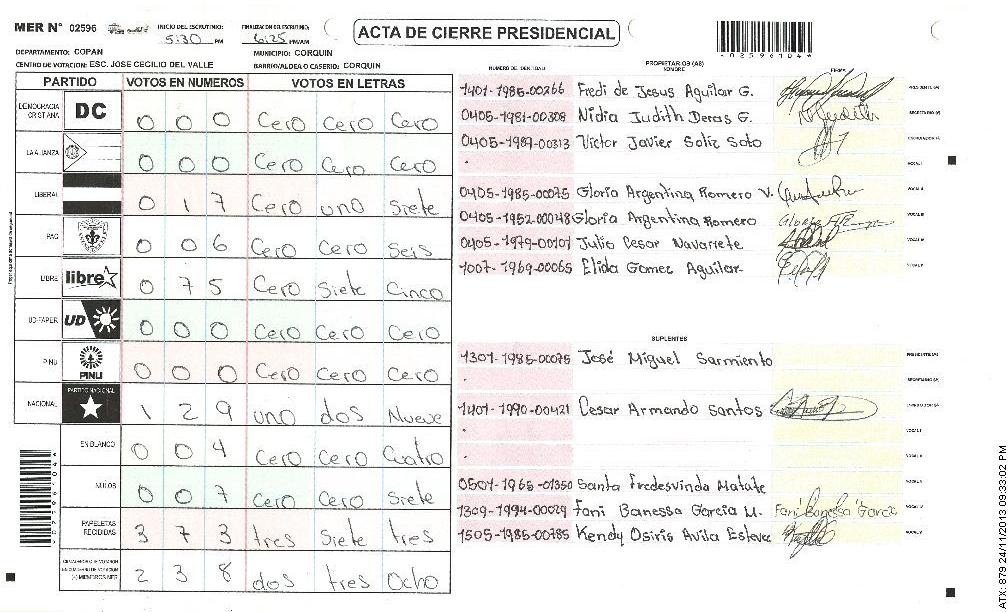 MER N° 02596
INICIO DEL ESCRUTINIO: 5:30 PM
FINALIZACION DEL ESCRUTINIO: 6:25 PM/AM
ACTA DE CIERRE PRESIDENCIAL
02596104
DEPARTAMENTO: COPAN
MUNICIPIO: CORQUIN
CENTRO DE VOTACION: ESC. JOSE CECILIO DEL VALLE
BARRIO/ALDEA O CASERIO: CORQUIN
PARTIDO VOTOS EN NUMEROS VOTOS EN LETRAS
DEMOCRACIA CRISTIANA DC 0 0 0 Cero Cero Cero
LA ALIANZA 0 0 0 Cero Cero Cero
LIBERAL 0 1 7 Cero uno Siete
PAC 0 0 6 Cero Cero Seis
LIBRE libre 0 7 5 Cero Siete Cinco
UD-FAPER UD 0 0 0 Cero Cero Cero
PINU PINU 0 0 0 Cero Cero Cero
NACIONAL PARTIDO NACIONAL 1 2 9 uno dos Nueve
EN BLANCO 0 0 4 Cero Cero Cuatro
NULOS 0 0 7 Cero Cero Siete
PAPELETAS RECIBIDAS 3 7 3 tres Siete tres
CIUDADANOS QUE VOTARON EN CUADERNO DE VOTACION (+) MIEMBROS MER 2 3 8 dos tres Ocho
NUMERO DE IDENTIDAD PROPIETARIOS (AS) NOMBRE FIRMA
1401-1985-00266 Fredi de Jesus Aguilar G. PRESIDENTE (A)
0405-1981-00308 Nidia Judith Deras G. SECRETARIO (A)
0405-1987-00313 Victor Javier Soliz Soto ESCRUTADOR (A)
VOCAL I
0405-1985-00075 Gloria Argentina Romero V. VOCAL II
0405-1952-00048 Gloria Argentina Romero VOCAL III
0405-1979-00101 Julio Cesar Navarrete VOCAL IV
1007-1969-00065 Elida Gomez Aguilar VOCAL V
SUPLENTES
1301-1985-00075 José Miguel Sarmiento PRESIDENTE (A)
SECRETARIO (A)
1401-1990-00421 Cesar Armando Santos ESCRUTADOR (A)
VOCAL I
VOCAL II
0501-1965-01350 Santa Fredesvinda Matute VOCAL III
1309-1994-00029 Fani Banessa Garcia M. Fani Banessa Garcia VOCAL IV
1505-1985-00785 Kendy Osiris Avila Esteve VOCAL V
02596104
ATX: 879 24/11/2013 09:33:02 PM